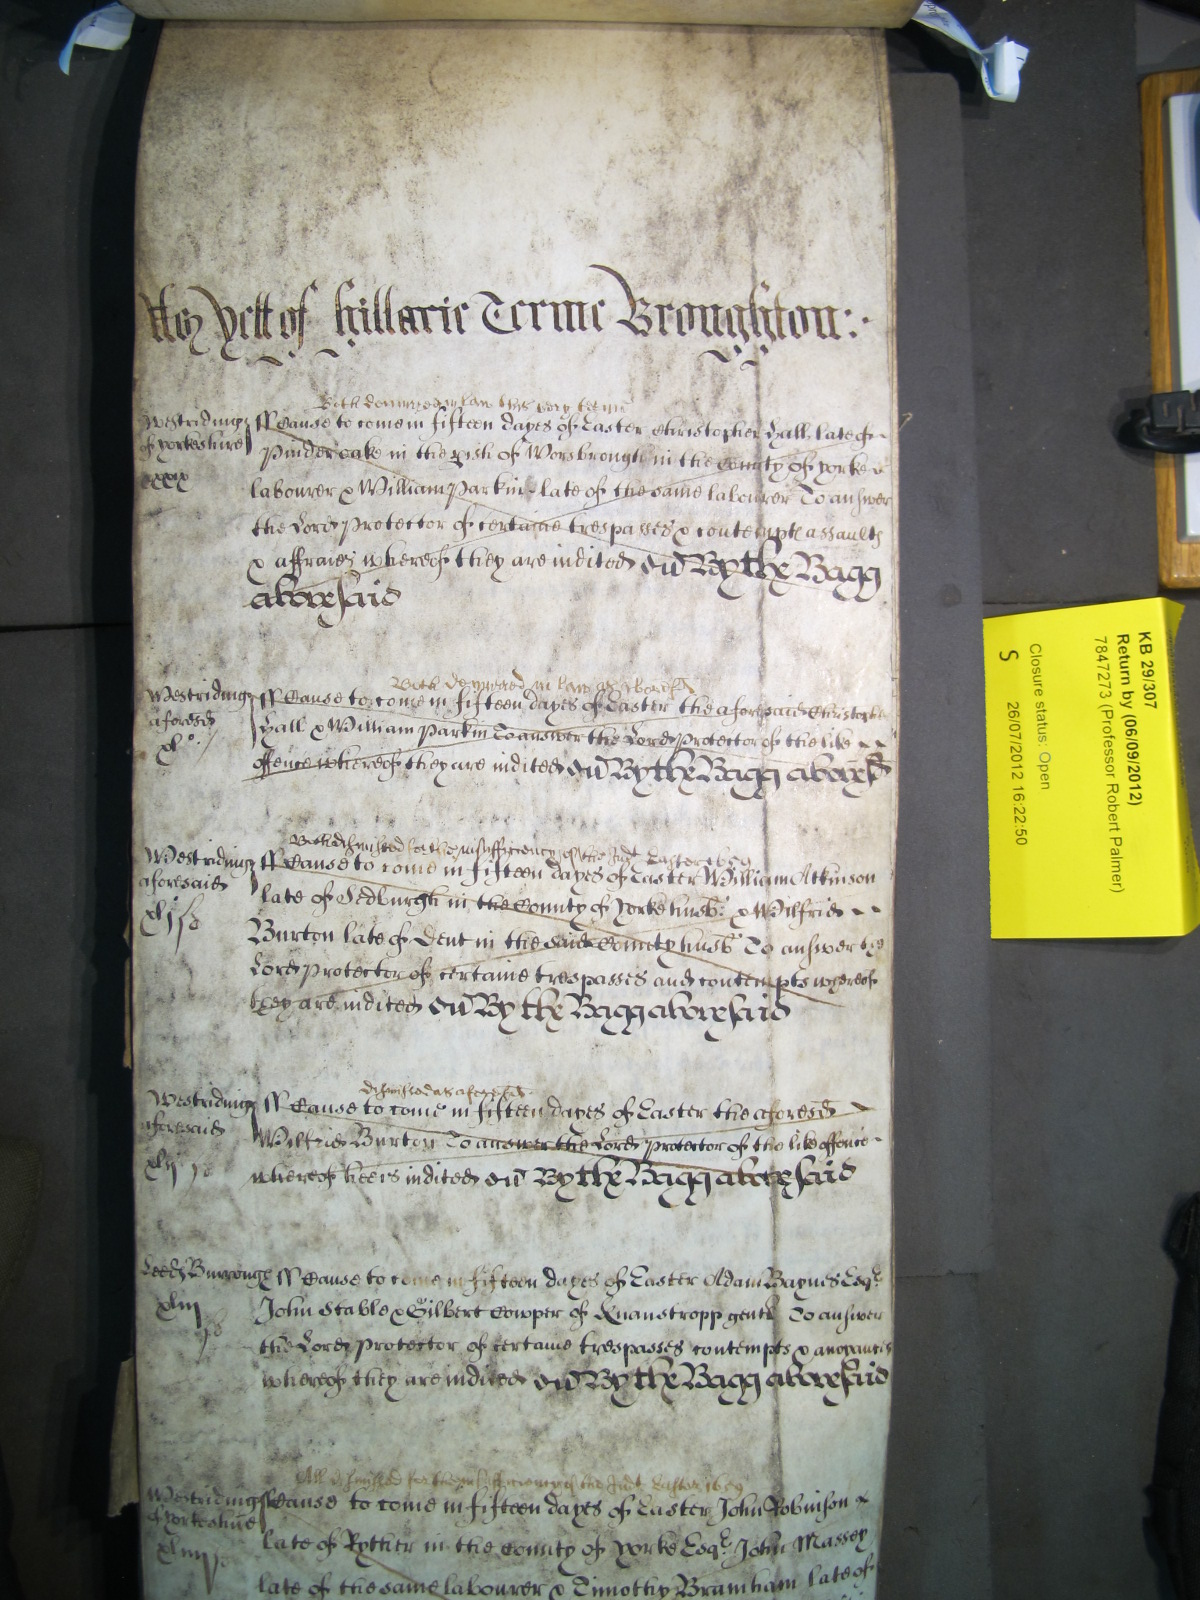 Yett of Hillarie Terme Broughton:
Both demurred in law this very terme
Westriding of Yorkeshire xxxix
ss Cause to come in fifteen dayes of Easter Christopher Hall late of
Pinder oake in the pish of Worsbrough in the County of Yorke
labourer & William Parkin late of the same labourer To answer
the Lord Protector of certaine trespasses & contempts assaults
& affraies whereof they are indited By the Bagg
aboresaid
Both demurred in law as aboresd
Westriding aforesd xl
ss Cause to come in fifteen dayes of Easter the aforesaid Christopher
Hall & William Parkin To answer the Lord Protector of the like
offence whereof they are indited By the Bagg aboresd
Both dismissed for the insufficiency of the Indt Easter 1659
Westriding aforesaid xlj
ss Cause to come in fifteen dayes of Easter William Atkinson
late of Sedburgh in the County of Yorke husb & Wilfrid
Burton late of Dent in the said County husb To answer the
Lord Protector of certaine trespasses and contempts whereof
they are indited By the Bagg aboresaid
dismissed as aforesd
Westriding aforesaid xlij
ss Cause to come in fifteen dayes of Easter the aforesd
Wilfrid Burton To answer the Lord Protector of the like offence
whereof hee is indited By the Bagg aboresaid
Leeds Burrough xliij
ss Cause to come in fifteen dayes of Easter Adam Baynes Esqr
John Stable & Gilbert Cowper of Knanstropp gentl To answer
the Lord Protector of certaine trespasses contempts & anoyances
whereof they are indited By the Bagg aboresaid
All dismissed for the insufficiency of the Indt Easter 1659
Westriding of Yorkeshire xliiij
ss Cause to come in fifteen dayes of Easter John Robinson
late of Ryther in the County of Yorke Esqr John Massey
late of the same labourer & Timothy Bramham late of
KB 29/307
Return by (06/09/2012)
7847273 (Professor Robert Palmer)
Closure status: Open
26/07/2012 16:22:50
S